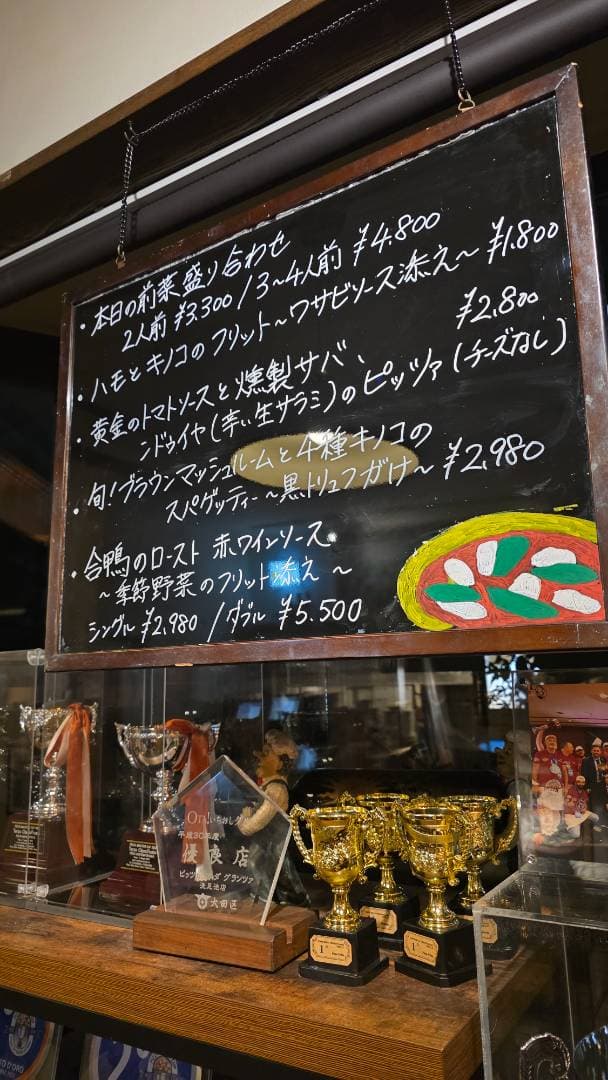 ・本日の前菜盛り合わせ
2人前 ¥3.300 / 3~4人前 ¥4.800
・ハモとキノコのフリット~ワサビソース添え~ ¥1.800
・黄金のトマトソースと燻製サバ、 ¥2.800
ンドゥイヤ(辛い生サラミ)のピッツァ(チーズなし)
・旬!ブラウンマッシュルームと4種キノコの
スパゲッティー~黒トリュフがけ~ ¥2.980
・合鴨のロースト 赤ワインソース
~季節野菜のフリット添え~
シングル ¥2.980 / ダブル ¥5.500
平成30年度
優良店
大田区
1st
1st